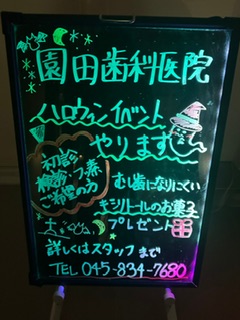 園田歯科医院
ハロウィンイベント
やります
初診の
検診・フッ素
ご希望の方
むし歯になりにくい
キシリトールのお菓子
プレゼント
詳しくはスタッフまで
TEL 045-834-7680